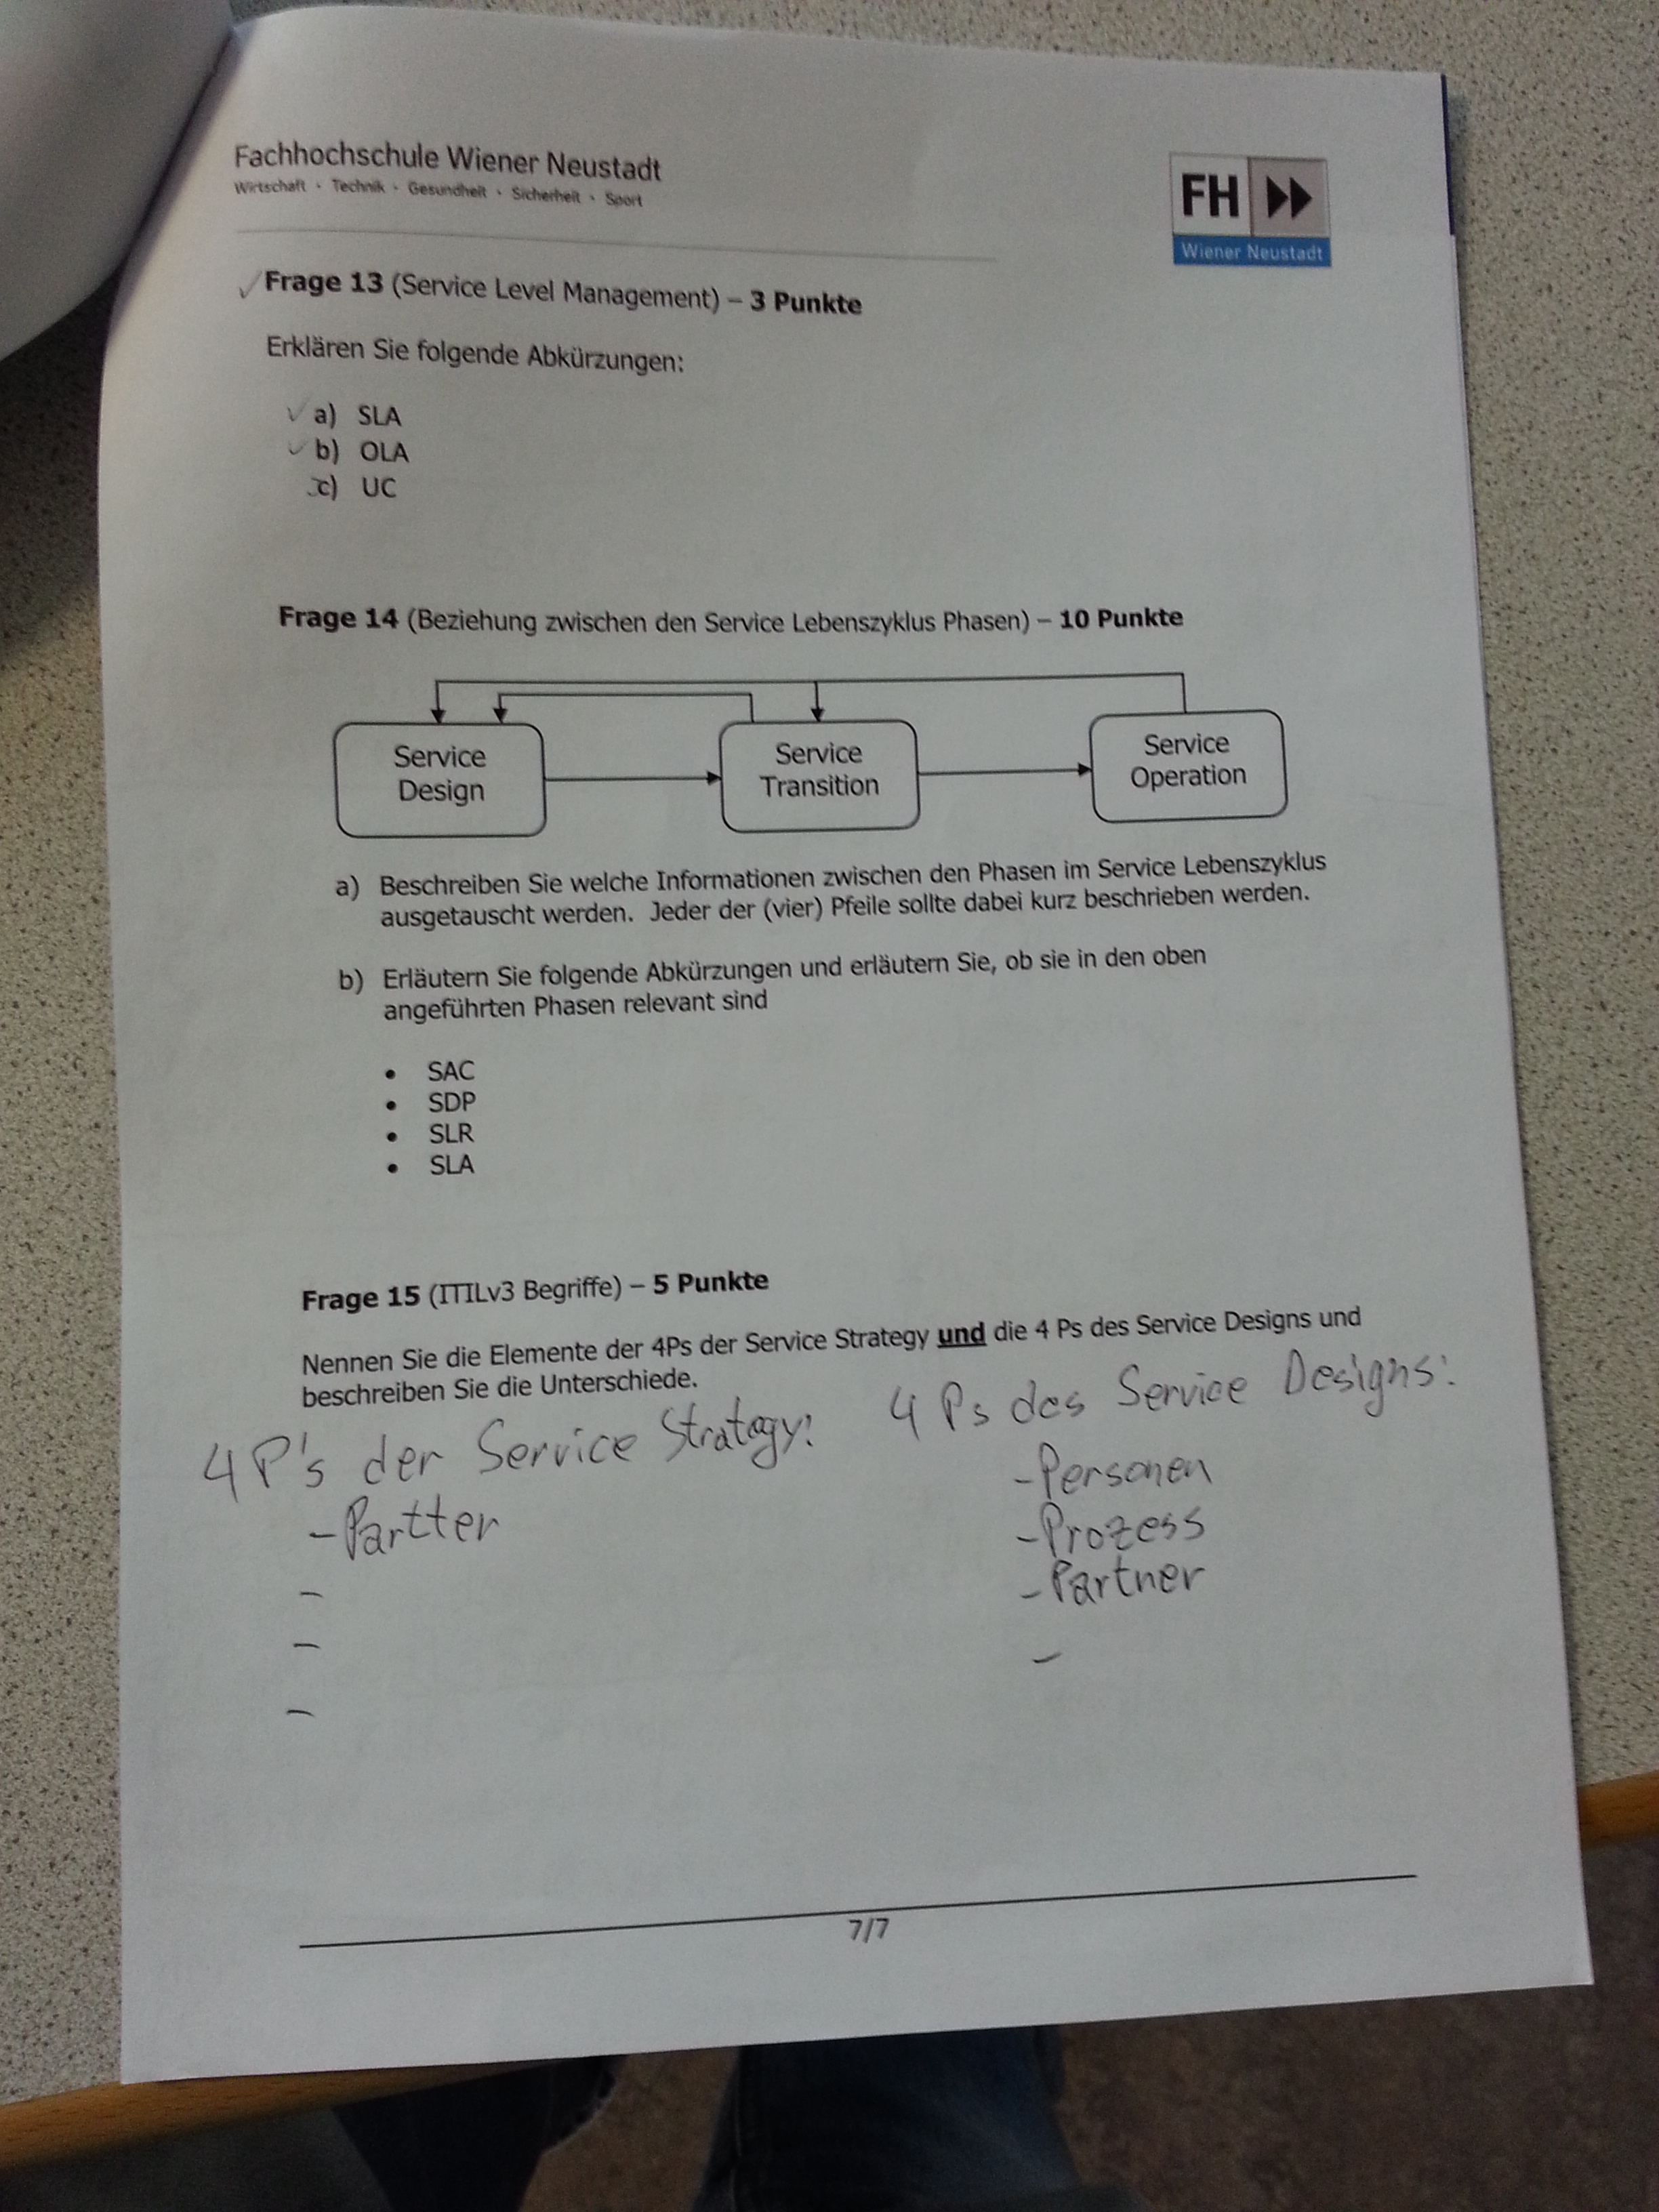 Fachhochschule Wiener Neustadt
Wirtschaft · Technik · Gesundheit · Sicherheit · Sport
FH
Wiener Neustadt
Frage 13 (Service Level Management) – 3 Punkte
Erklären Sie folgende Abkürzungen:
a) SLA
b) OLA
c) UC
Frage 14 (Beziehung zwischen den Service Lebenszyklus Phasen) – 10 Punkte
Service Design
Service Transition
Service Operation
a) Beschreiben Sie welche Informationen zwischen den Phasen im Service Lebenszyklus
ausgetauscht werden. Jeder der (vier) Pfeile sollte dabei kurz beschrieben werden.
b) Erläutern Sie folgende Abkürzungen und erläutern Sie, ob sie in den oben
angeführten Phasen relevant sind
• SAC
• SDP
• SLR
• SLA
Frage 15 (ITILv3 Begriffe) – 5 Punkte
Nennen Sie die Elemente der 4Ps der Service Strategy und die 4 Ps des Service Designs und
beschreiben Sie die Unterschiede.
4P's der Service Stratogy:
- Partter
-
-
-
4 Ps des Service Designs:
- Personen
- Prozess
- Partner
-
7/7